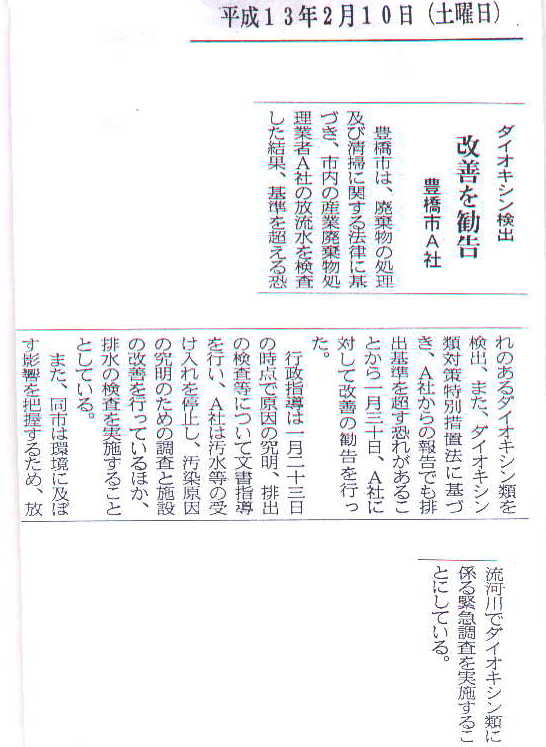 平成13年2月10日（土曜日）
ダイオキシン検出
改善を勧告
豊橋市A社
豊橋市は、廃棄物の処理
及び清掃に関する法律に基
づき、市内の産業廃棄物処
理業者A社の放流水を検査
した結果、基準を超える恐
れのあるダイオキシン類を
検出、また、ダイオキシン
類対策特別措置法に基づ
き、A社からの報告でも排
出基準を超す恐れがあるこ
とから一月三十日、A社に
対して改善の勧告を行っ
た。
行政指導は一月二十三日
の時点で原因の究明、排出
の検査等について文書指導
を行い、A社は汚水等の受
け入れを停止し、汚染原因
の究明のための調査と施設
の改善を行っているほか、
排水の検査を実施すること
としている。
また、同市は環境に及ぼ
す影響を把握するため、放
流河川でダイオキシン類に
係る緊急調査を実施するこ
とにしている。